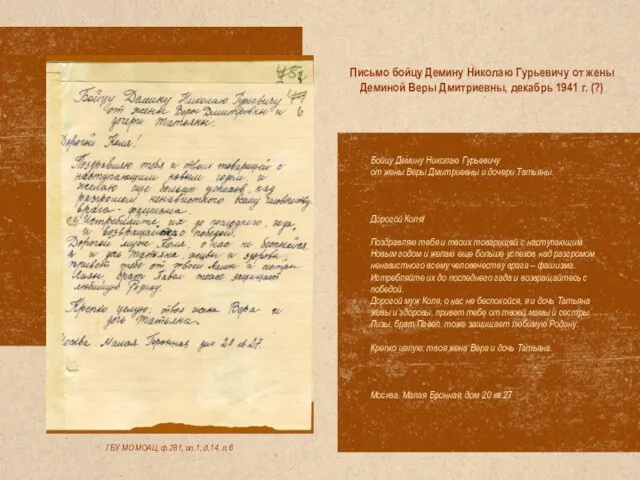 Письмо бойцу Демину Николаю Гурьевичу от жены
Деминой Веры Дмитриевны, декабрь 1941 г. (?)
Бойцу Демину Николаю Гурьевичу
от жены Веры Дмитриевны и
дочери Татьяны.
Дорогой Коля!
Поздравляю тебя и твоих товарищей с
наступающим новым годом и
желаю еще больше успехов над
разгромом ненавистного всему человечеству
врага - фашизма.
Истребляйте их до последнего гада
и возвращайтесь с победой.
Дорогой муж Коля, о нас не беспокойся
я и дочь Татьяна живы и здоровы,
привет тебе от твоей мамы и сестры
Лизы, брат Павел тоже защищает
любимую Родину.
Крепко целую: твоя жена Вера и
дочь Татьяна.
Москва. Малая Бронная дом 20 кв 27.
Бойцу Демину Николаю Гурьевичу
от жены Веры Дмитриевны и дочери Татьяны.
Дорогой Коля!
Поздравляю тебя и твоих товарищей с наступающим
Новым годом и желаю еще больше успехов над разгромом
ненавистного всему человечеству врага – фашизма.
Истребляйте их до последнего гада и возвращайтесь с
победой.
Дорогой муж Коля, о нас не беспокойся, я и дочь Татьяна
живы и здоровы, привет тебе от твоей мамы и сестры
Лизы, брат Павел, тоже защищает любимую Родину.
Крепко целую: твоя жена Вера и дочь Татьяна.
Москва. Малая Бронная, дом 20 кв.27
ГБУ МО МОАЦ, ф.281, оп.1, д.14, л.6